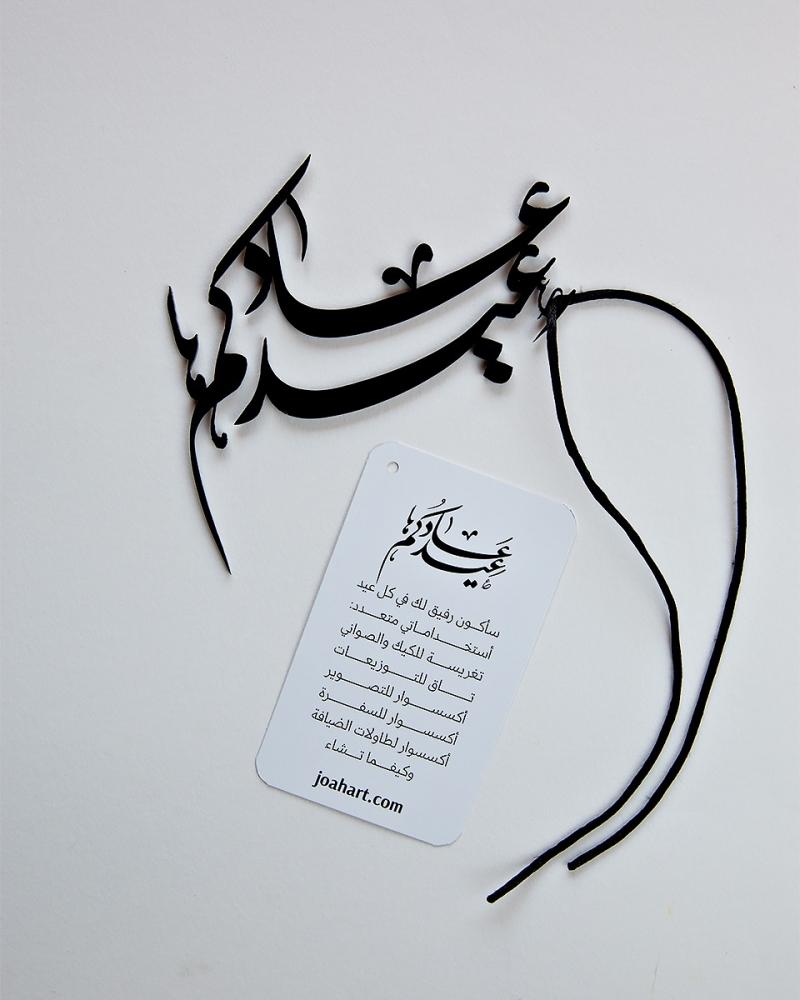 عاد
عيدكم
عاد
عيدكم
سأكـون رفيق لك في كل عيد
أستخـدامـاتي متعـدد:
تغريسـة للكيك والصواني
تـاق للتـوزيعـات
أكسسـوار للتصـوير
أكسسـوار للسفـرة
أكسسوار لطاولات الضيافة
وكيفـما تـشاء
joahart.com